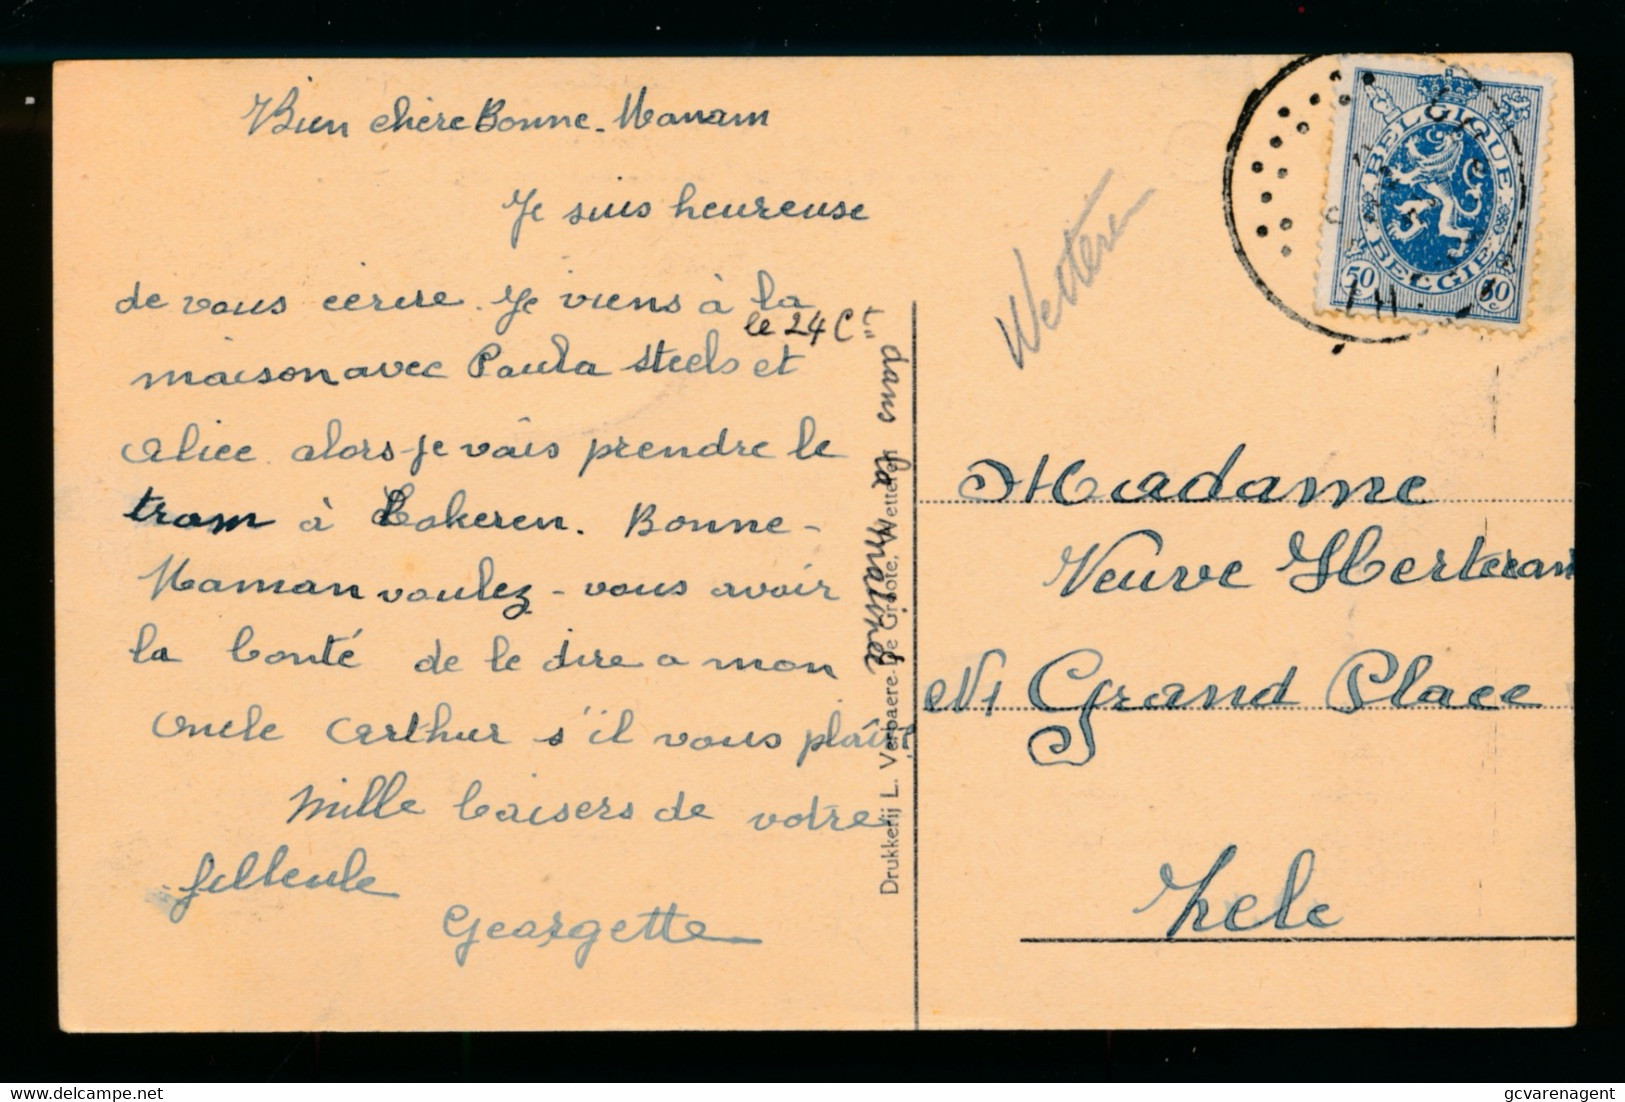 Bien chère Bonne-Maman
Je suis heureuse
de vous écrire. Je viens à la
le 24 Ct dans la matiné
maison avec Paula Steels et
Alice. alors je vais prendre le
tram à Lokeren. Bonne-
Maman voulez-vous avoir
la bonté de le dire a mon
Oncle Arthur s'il vous plaît.
Mille baisers de votre
filleule
Georgette
Drukkerij L. Verbaere-De Groote, Wetteren
Wetteren
BELGIQUE
BELGIE
50 c
50 c
Madame
Veuve
N1 Grand Place
Zele
gcvarenagent